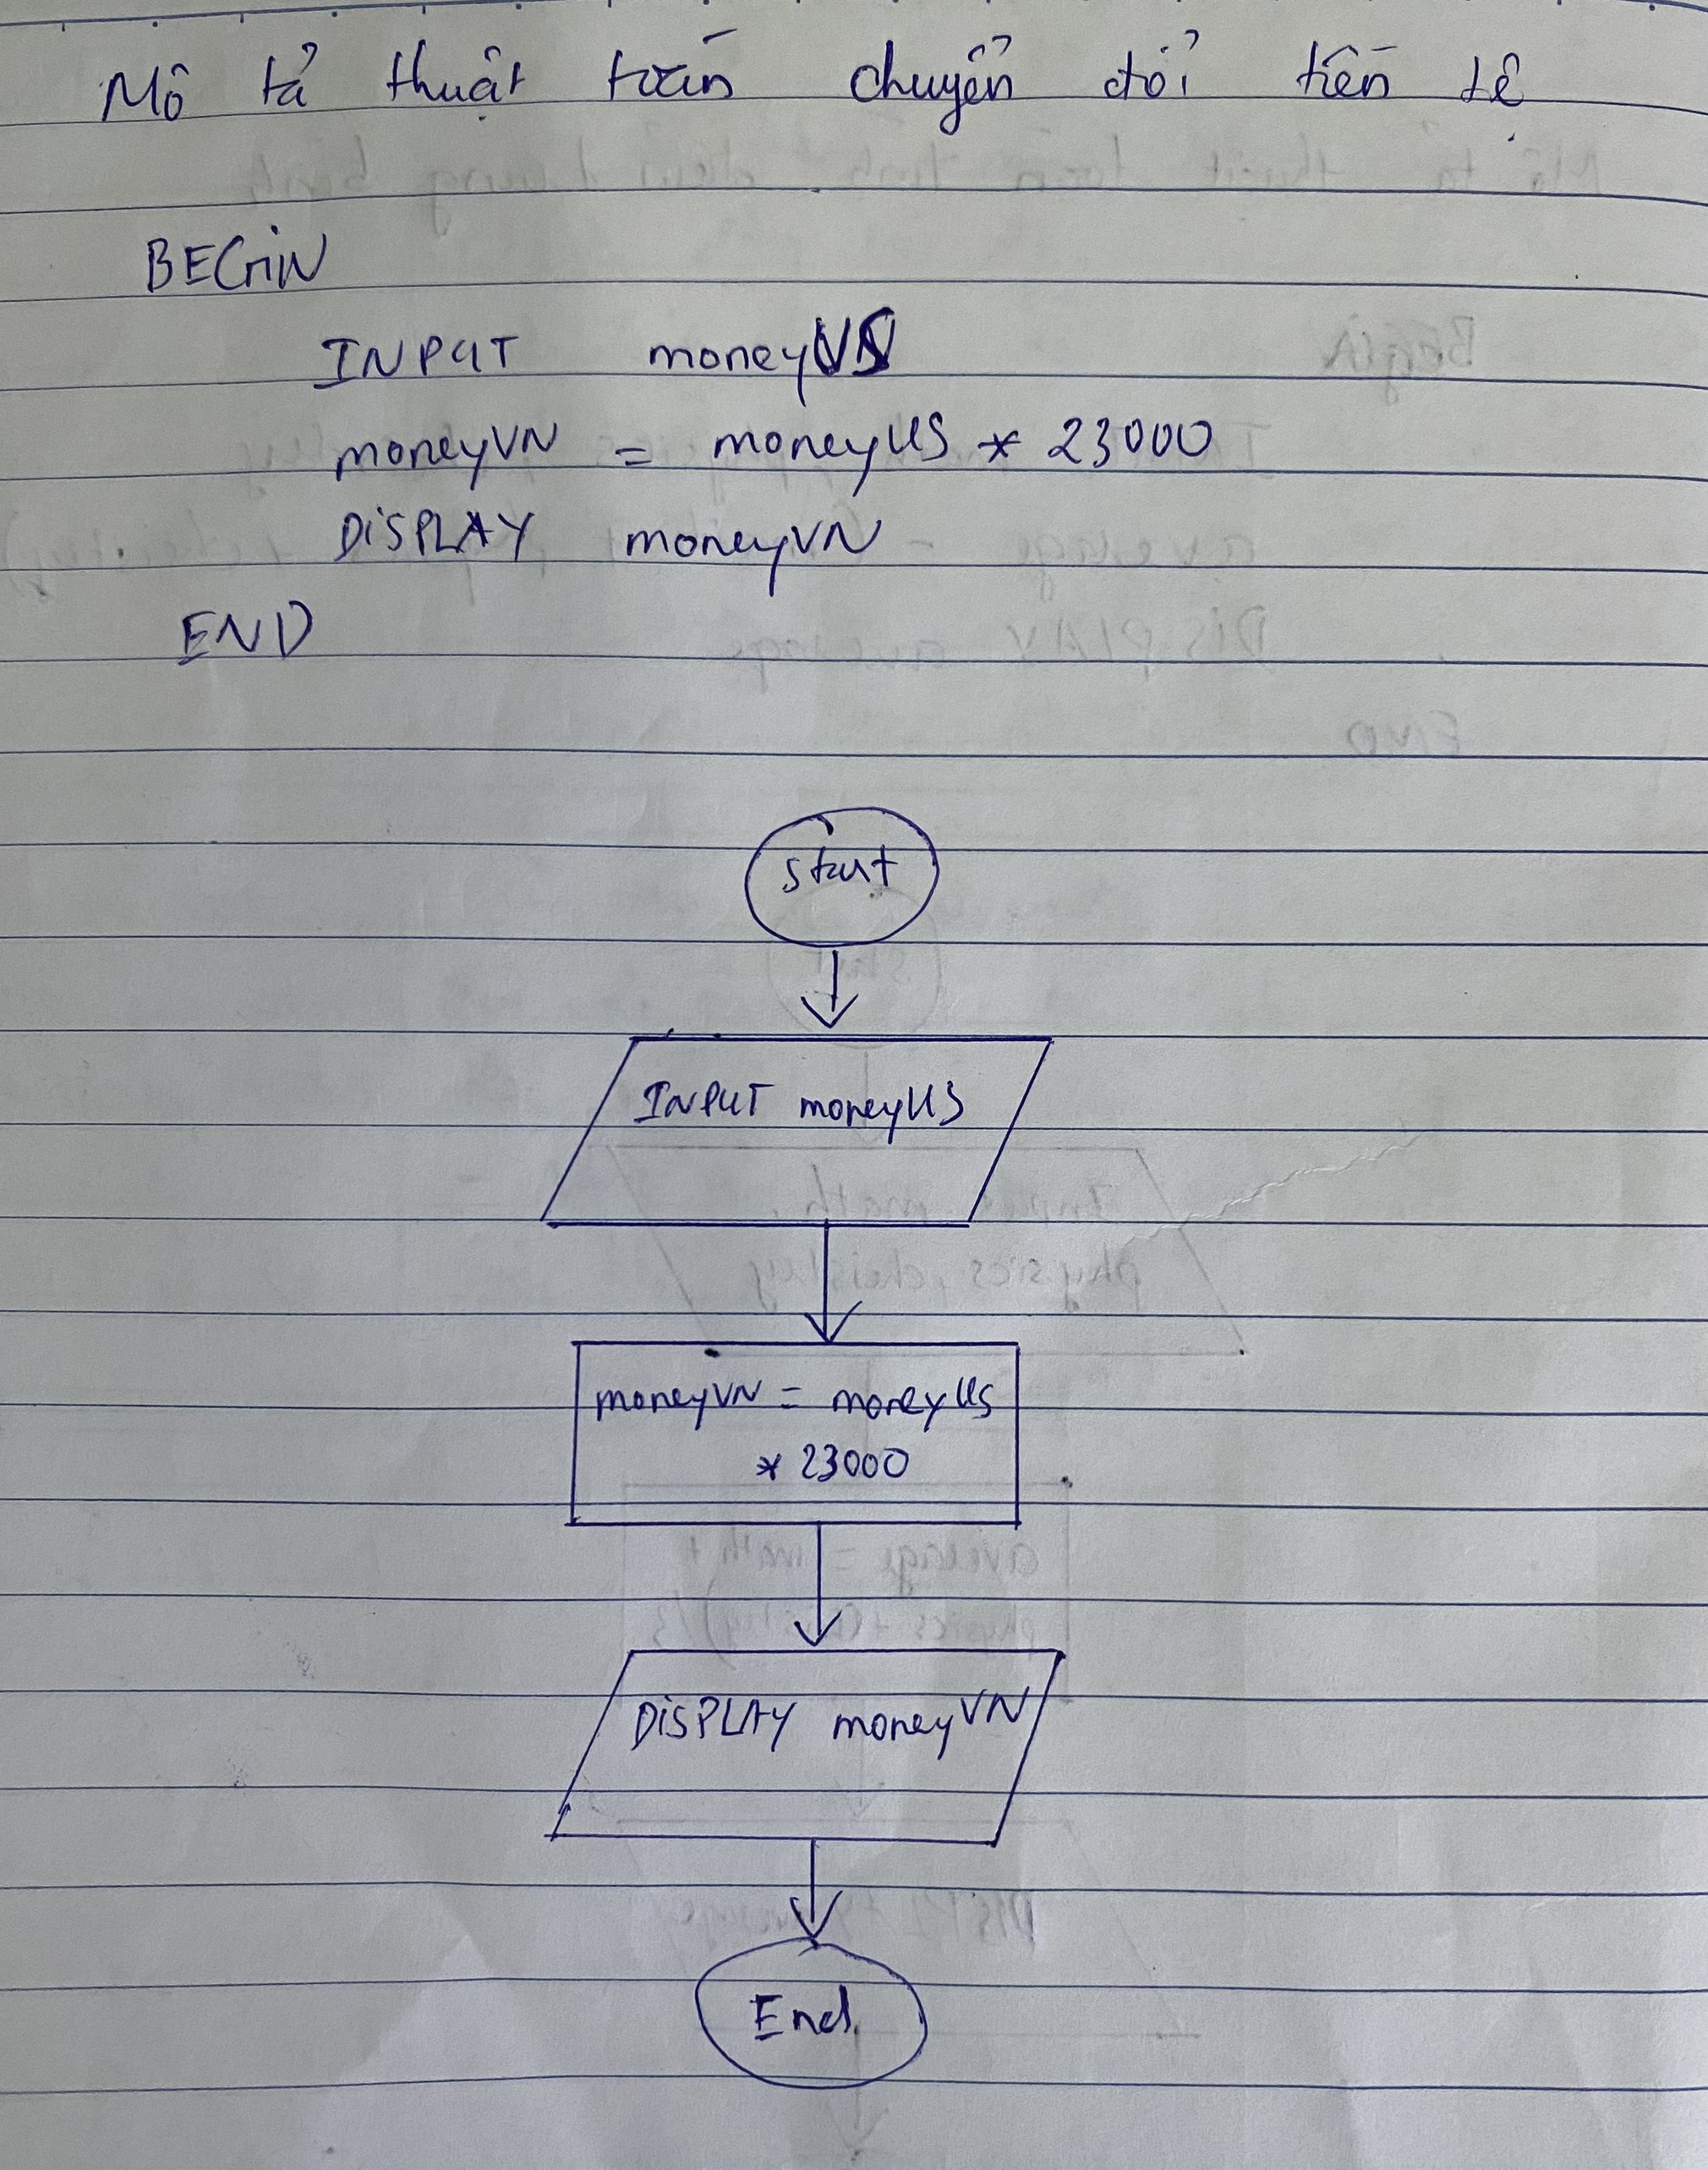 Mô tả thuật toán chuyển đổi tiền tệ
BEGIN
INPUT moneyUS
moneyVN = moneyUS * 23000
DISPLAY moneyVN
END
Start
INPUT moneyUS
moneyVN = moneyUS
* 23000
DISPLAY moneyVN
End